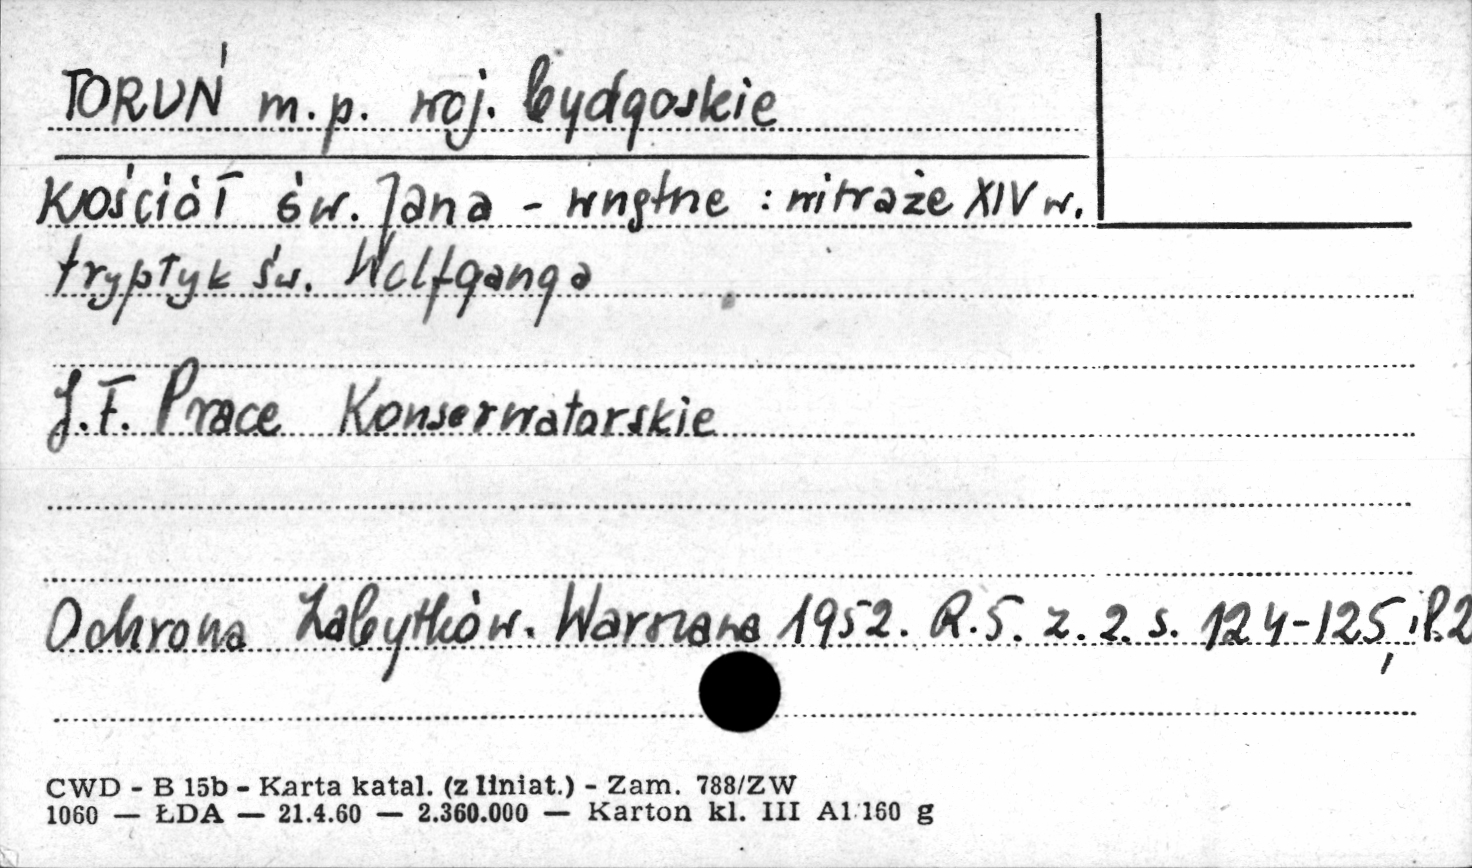 TORUŃ m.p. woj. bydgoskie
Kościół św. Jana - wnętrze : witraże XIV w.
tryptyk św. Wolfganga
J.F. Prace Konserwatorskie
Ochrona Zabytków. Warszawa 1952. R.5. z. 2. s. 124-125, il. 2
CWD - B 15b - Karta katal. (z liniat.) - Zam. 788/ZW
1060 — ŁDA — 21.4.60 — 2.360.000 — Karton kl. III A1 160 g